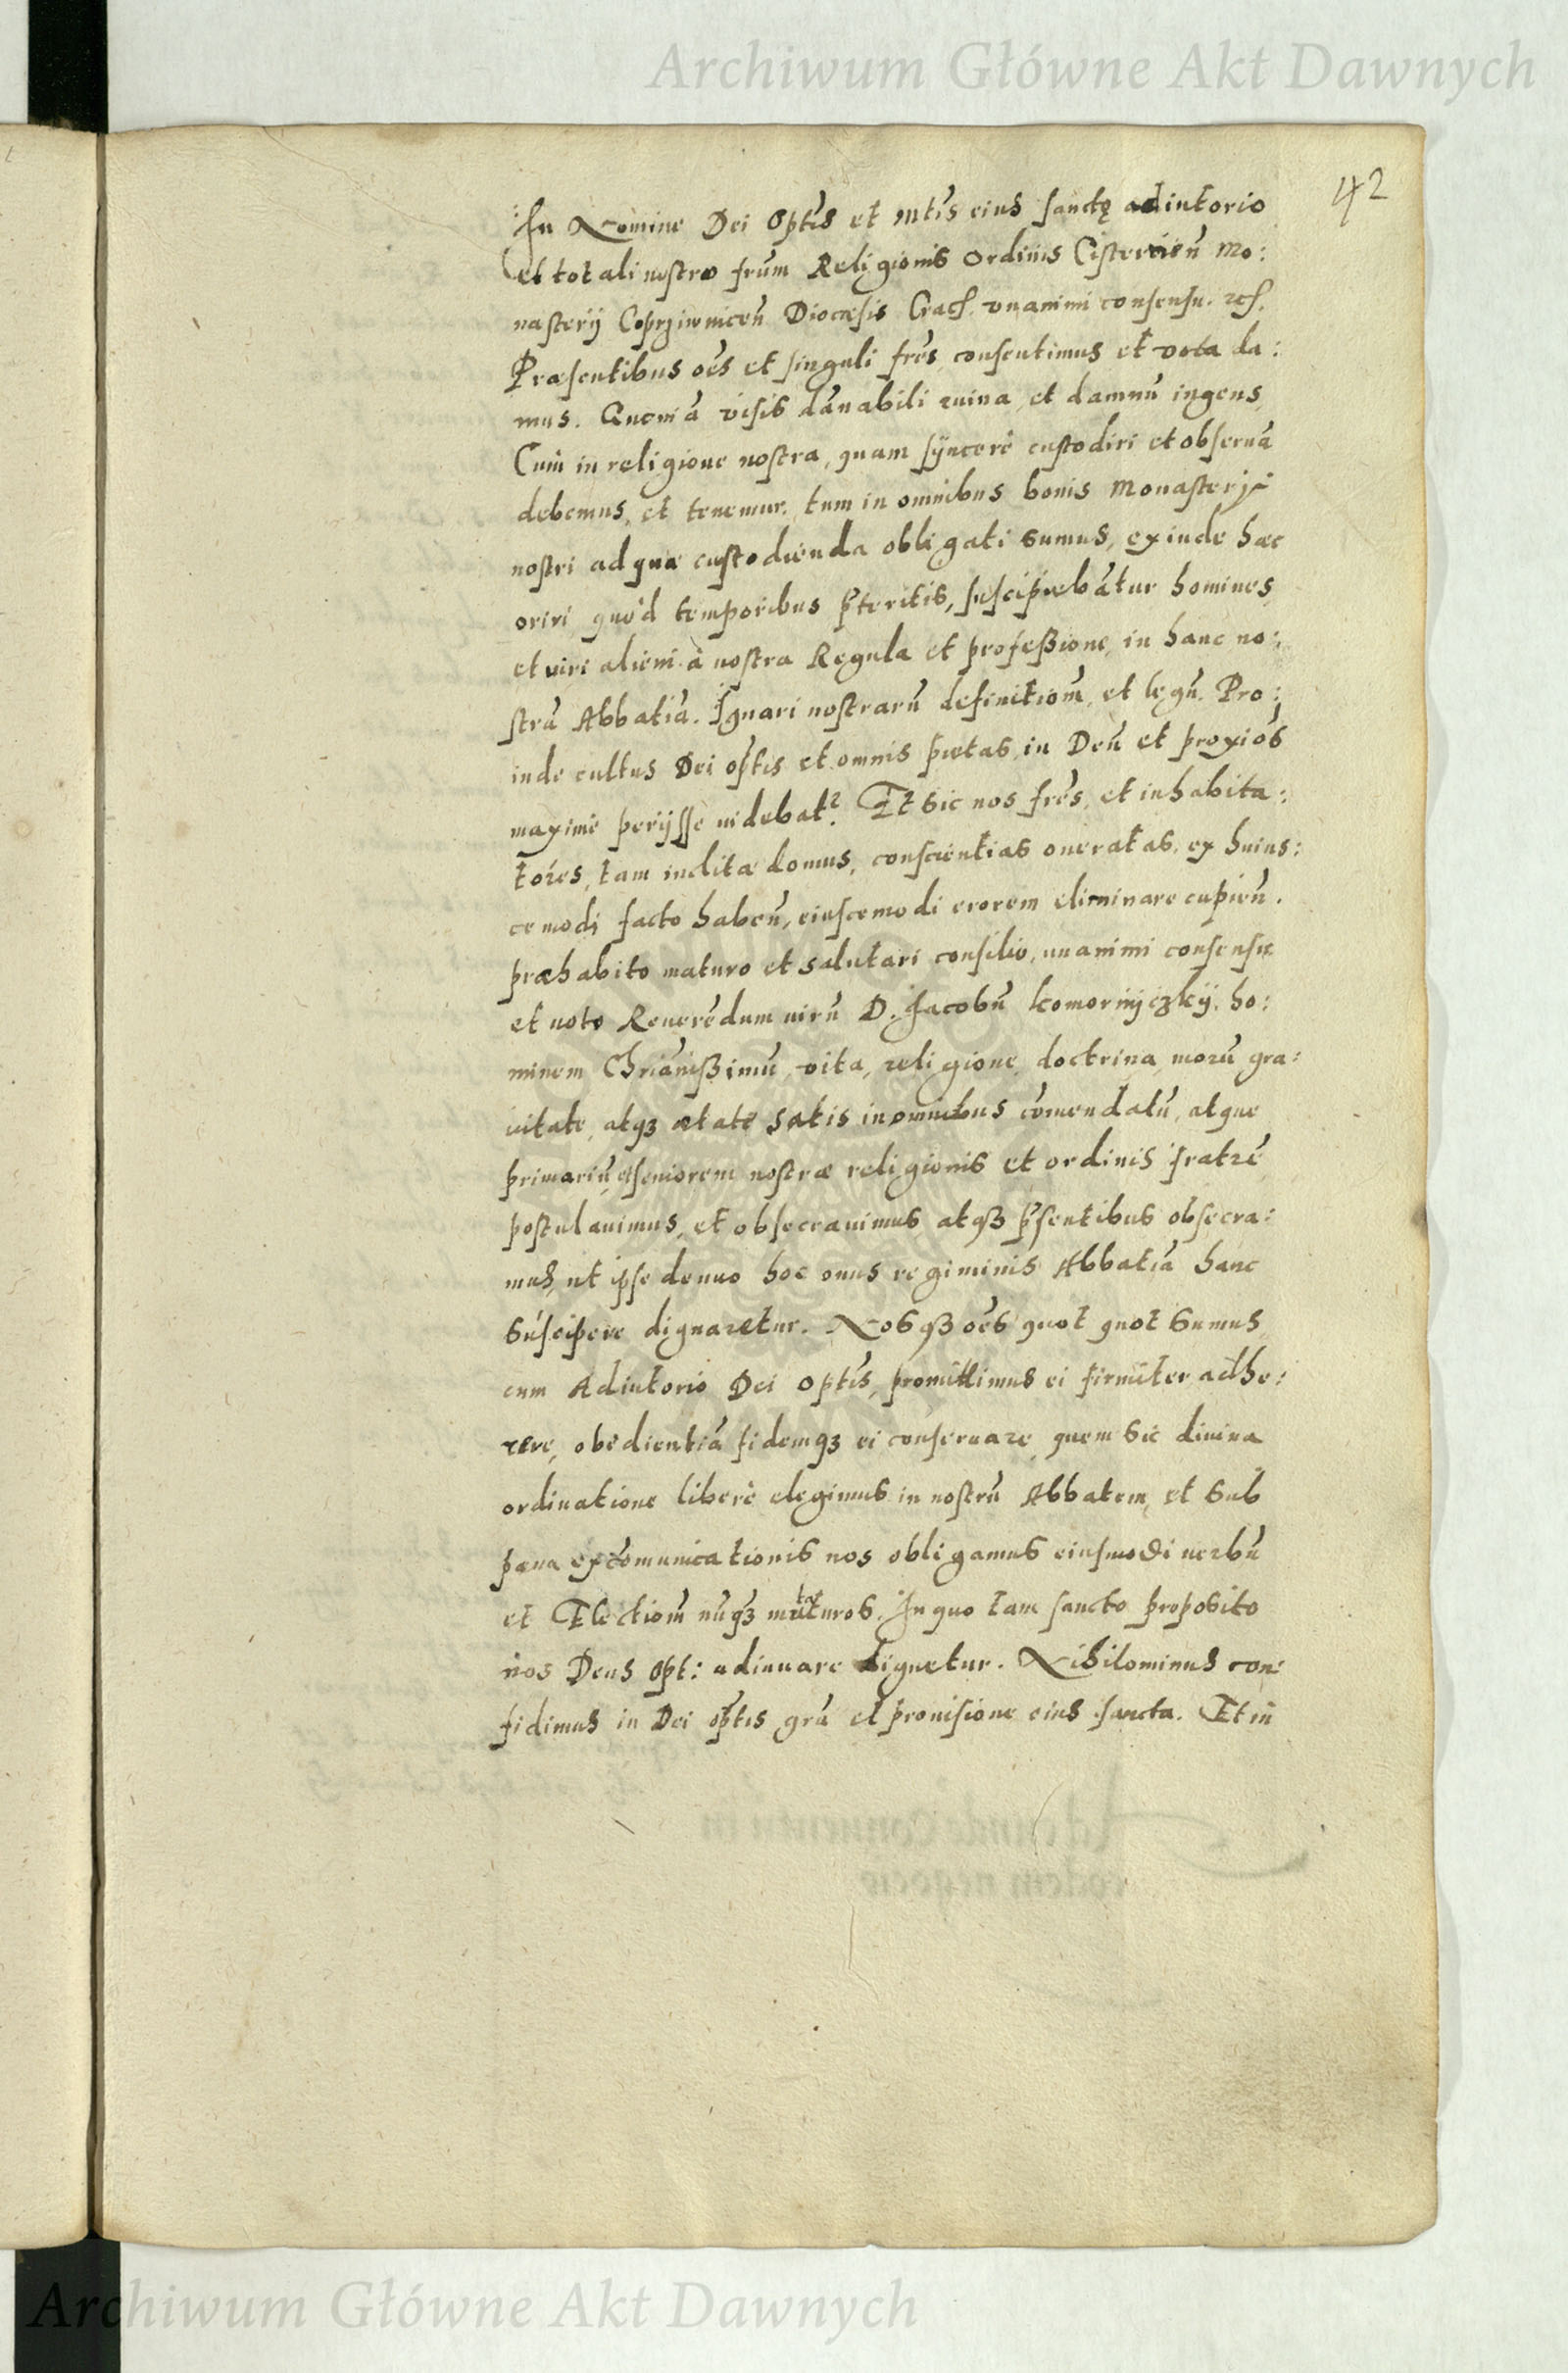 Archiwum Główne Akt Dawnych
42
In Nomine Dei Optĩs et mtĩs eius sanctę adiutorio
et totali nostro frũm Religionis Ordinis Cistercień Mo:
nasterij Coprziwniceń Diocæsis Crac̃. vnanimi consensu. etc̃.
Præsentibus oẽs et singuli frẽs, consentimus et vota da:
mus. Quoniã visis dãnabili ruina, et damnũ ingens,
Cum in religione nostra, quam sÿncerè custodiri et obseruã
debemus, et tenemur. tum in omnibus bonis Monasterij
nostri ad quæ custodienda obligati sumus, exinde hæc
oriri, quòd temporibus p̃teritis, suscipiebãtur homines,
et viri alieni à nostra Regula et profeßione, in hanc no:
strã Abbatiã. Ignari nostrarũ definitiom̃, et legũ. Pro:
inde cultus Dei optĩs et omnis pietas, in Deũ et proxiõs
maximè perijsse uidebat². Et sic nos frẽs, et inhabita:
tóres, tam inclitæ domus, conscientias oneratas, ex huius:
cemodi facto habeñ, eiuscemodi erorem eliminare cupień.
præhabito maturo et salutari consilio, unanimi consensu
et uoto Reuerẽdum uirũ D. Jacobũ Komorniczkÿ. ho:
minem Chriãnißimũ, vita, religione, doctrina, morũ gra:
uitate, atqꝫ ætate satis in omnibus cõmendatũ, atque
primariũ, et seniorem nostræ religionis et ordinis fratrẽ
postulauimus, et obsecrauimus, atqꝫ p̃sentibus obsecra:
mus, ut ipse denuo hoc onus regiminis Abbatiã hanc
súscipere dignaretur. Nosqꝫ oẽs quot quot sumus
cum Adiutorio Dei Optĩs, promittimus ei firmiter adhe:
rere, obedientiã fidemqꝫ ei conseruare, quem sic diuina
ordinatione liberè elegimus in nostrũ Abbatem, et sub
pæna excõmunicationis nos obligamus eiusmodi uerbũ
et Electiom̃ nũqꝫ mutaturos. In quo tam sancto proposito
nos Deus Opt: adiuuare dignetur. Nihilominus con:
fidimus in Dei optĩs grã et prouisione eius sancta. Et in
Archiwum Główne Akt Dawnych